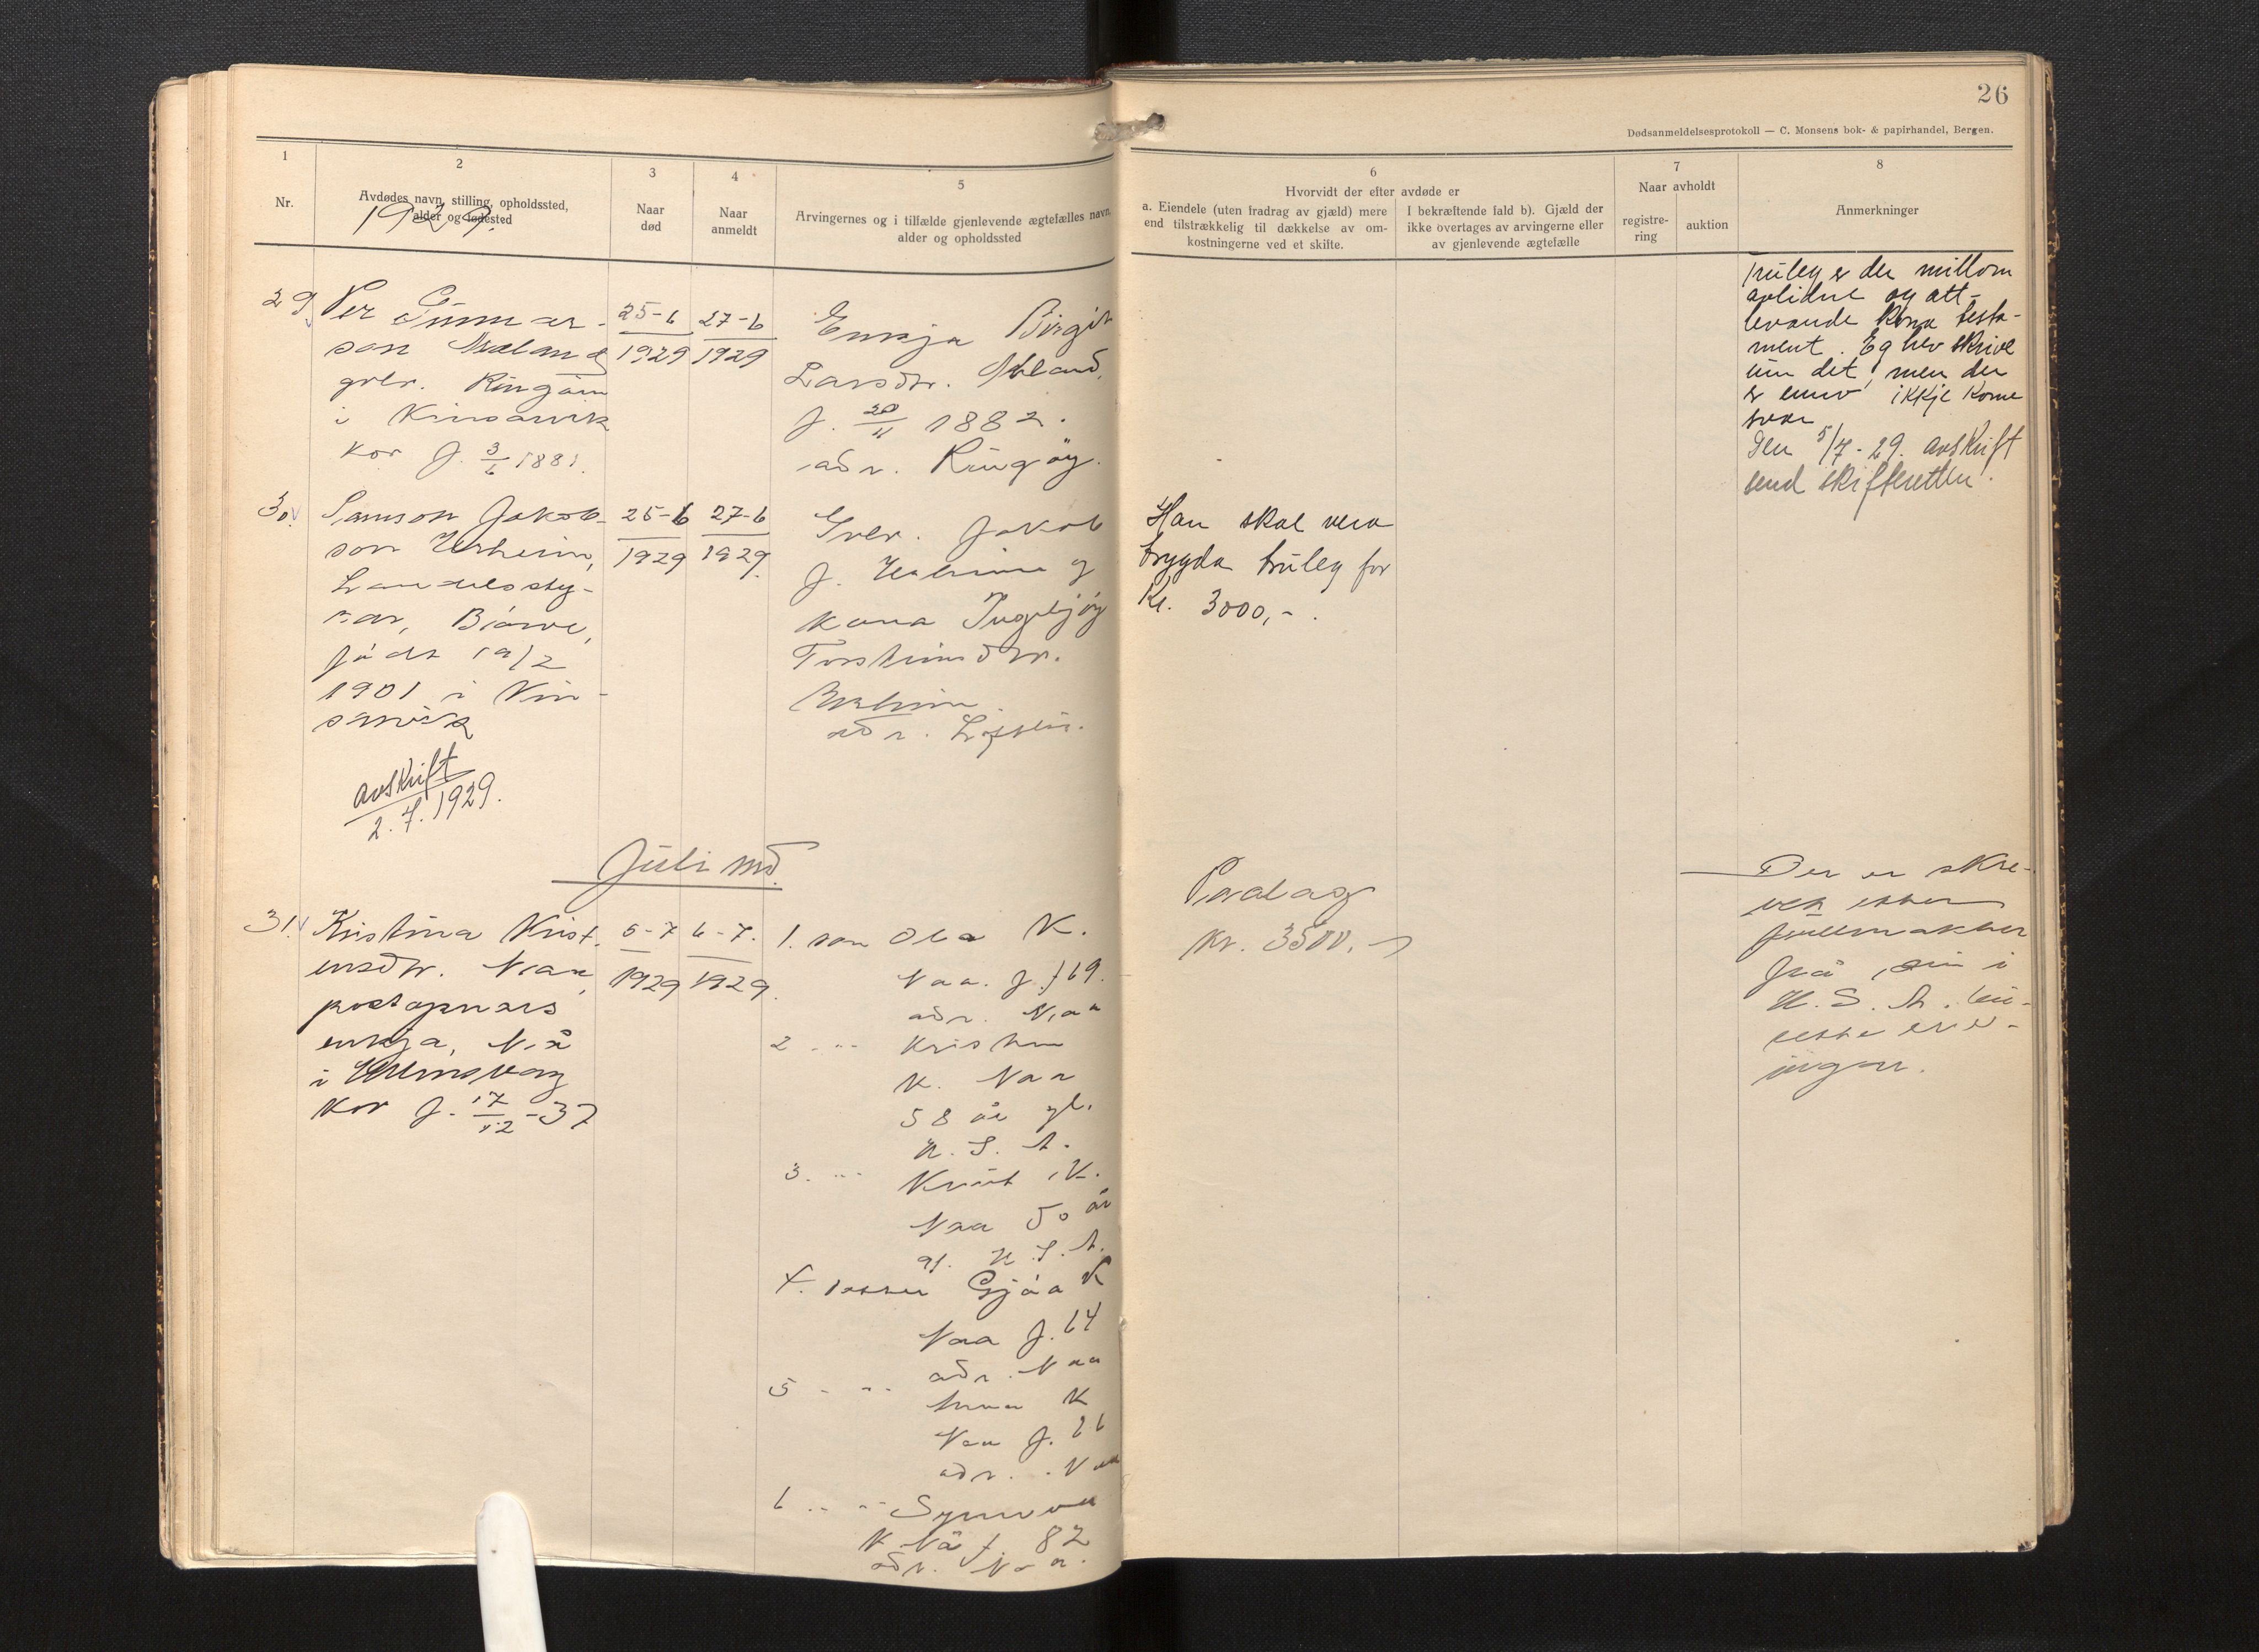 26
Dødsanmeldelsesprotokoll — C. Monsens bok- & papirhandel, Bergen.
1
Nr.
2
Avdødes navn, stilling, opholdssted,
alder og fødested
1929.
3
Naar
død
4
Naar
anmeldt
5
Arvingernes og i tilfælde gjenlevende ægtefælles navn,
alder og opholdssted
6
Hvorvidt der efter avdøde er
a. Eiendele (uten fradrag av gjæld) mere
end tilstrækkelig til dækkelse av om-
kostningerne ved et skifte.
I bekræftende fald b). Gjæld der
ikke overtages av arvingerne eller
av gjenlevende ægtefælle
7
Naar avholdt
registre-
ring
auktion
8
Anmerkninger
29
Per Gunnar-
son Mæland
grbr. Ringöim
i Kinsarvik
kor f. 3/6 1881.
25-6
1929
27-6
1929
Enkja Birgit
Larsdtr.
f. 20/11 1882.
adr. Ringöy.
Truleg er der millom
avlidne og att-
levande kona testa-
ment. Eg hev skrive
um det, men der
er enno ikkje kome
svar
Den 5/7-29. avskrift
send skifteretten.
30.
Samson Jakob-
son Urheim,
Lan
kar, Börve,
födt 19/2
1901 i Kin-
sarvik
25-6
1929
27-6
1929.
Grbr. Jakob
J. Urheim og
kona Ingebjörg
Torsteinsdtr.
Urheim
adr. Lofthus.
Han skal vera
trygda truleg for
Kr. 3000,-.
avskrift
2.7.1929.
Juli md.
31.
Kristina Krist-
ensdtr. Naa,
postopnars
enkja, Nå
i Ullensvang
kor f. 17/12-37
5-7
1929
6-7.
1929.
1. son Ola K.
Naa. f. 69.
adr. Naa
2 " Kristen
K. Naa
58 år gl.
U. S. A.
3. " Knut K.
Naa 50 år
gl. U. S. A.
4. dotter Gjöa K
Naa f. 64
adr. Naa
5 " Anna K
Naa f. 66
adr. Naa
6 " Synneva
K. Nå f. 82
adr. Naa.
Paalag
kr. 3500,-
Der er skre-
ve etter
fullmakter
frå dei i
U. S. A. bu-
sette erv-
ingar.